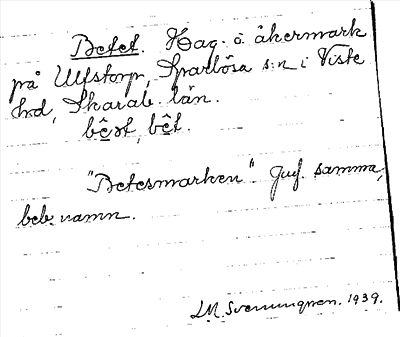 Betet. Hag o. åkermark
på Ulfstorp, Sparlösa s:n i Viste
hrd, Skarab. län.
bêət, bêt.
"Betesmarken". Jmf. samma,
beb. namn.
LM. Svenungson. 1939.